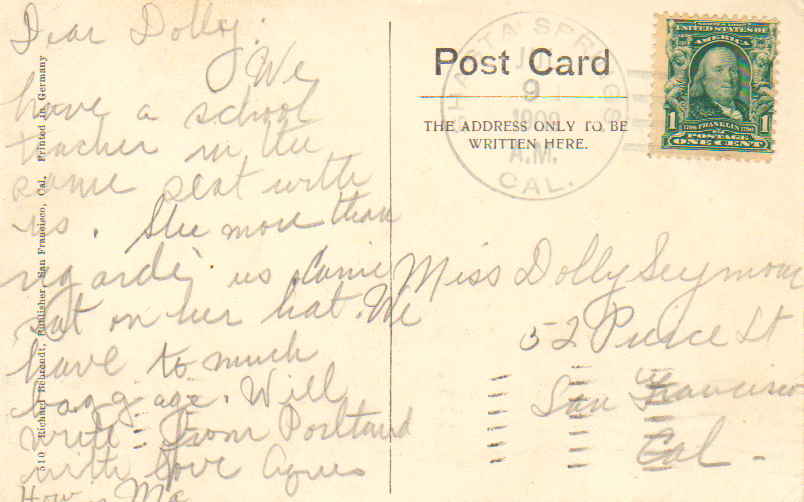 Dear Dolly:
We
have a school
teacher in the
same seat with
us. She more than
us. Jamie
sat on her hat. We
have to much
baggage. Will
write from Portland
with love Agnes
How Ma
510 Richard Behrendt, Publisher, San Francisco, Cal. Printed in Germany
Post Card
THE ADDRESS ONLY TO BE
WRITTEN HERE.
SHASTA SPRINGS
9
1909
A.M.
CAL.
UNITED STATES OF
AMERICA
1 1
FRANKLIN
POSTAGE
ONE CENT
Miss Dolly Seymour
52 Pierce St
San Francisco
Cal.